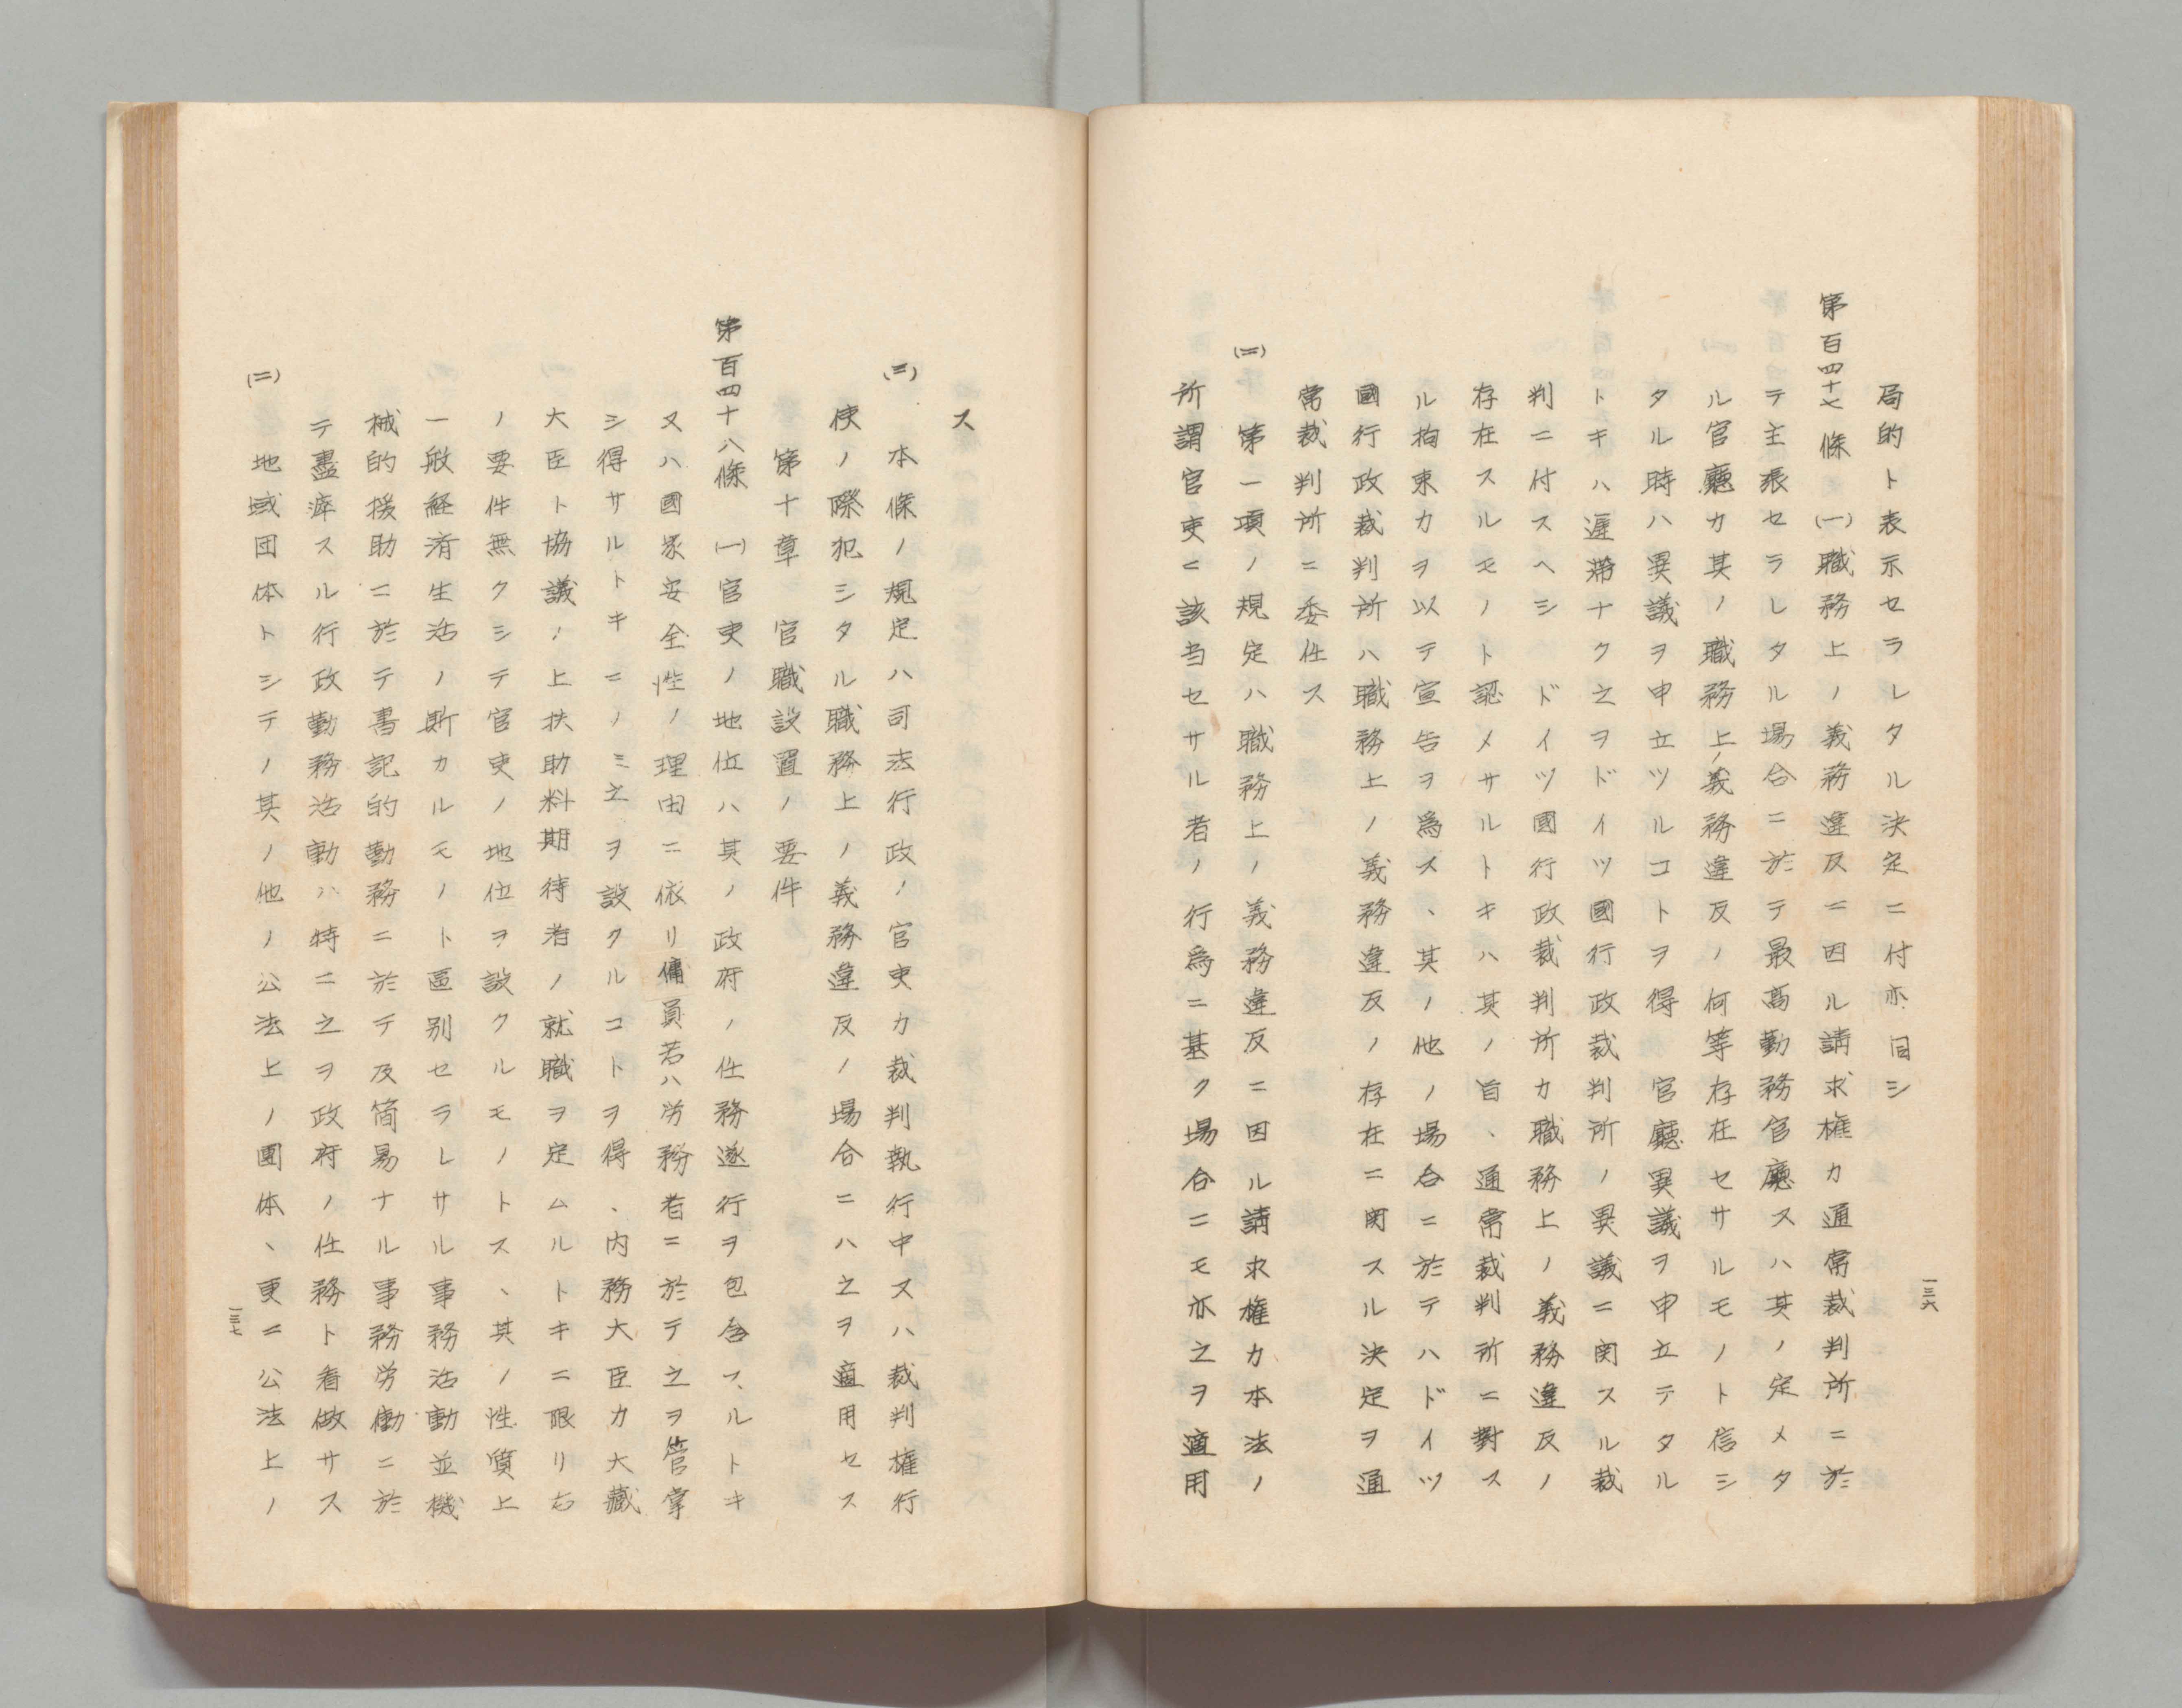 局的ト表示セラレタル決定ニ付亦同シ
第百四十七條 (一)職務上ノ義務違反ニ因ル請求権カ通常裁判所ニ於
テ主張セラレタル場合ニ於テ最高勤務官廳又ハ其ノ定メタ
ル官廳カ其ノ職務上ノ義務違反ノ何等存在セサルモノト信シ
タル時ハ異議ヲ申立ツルコトヲ得 官廳異議ヲ申立テタル
トキハ遅滞ナク之ヲドイツ國行政裁判所ノ異議ニ関スル裁
判ニ付スヘシ ドイツ國行政裁判所カ職務上ノ義務違反ノ
存在スルモノト認メサルトキハ其ノ旨、通常裁判所ニ對ス
ル拘束力ヲ以テ宣告ヲ為ス、其ノ他ノ場合ニ於テハドイツ
國行政裁判所ハ職務上ノ義務違反ノ存在ニ関スル決定ヲ通
常裁判所ニ委任ス
(二) 第一項ノ規定ハ職務上ノ義務違反ニ因ル請求権カ本法ノ
所謂官吏ニ該当セサル者ノ行為ニ基ク場合ニモ亦之ヲ適用
一三六
ス
(三) 本條ノ規定ハ司法行政ノ官吏カ裁判執行中又ハ裁判権行
使ノ際犯シタル職務上ノ義務違反ノ場合ニハ之ヲ適用セス
第十章 官職設置ノ要件
第百四十八條 (一)官吏ノ地位ハ其ノ政府ノ任務遂行ヲ包含スルトキ
又ハ國家安全性ノ理由ニ依リ傭員若ハ労務者ニ於テ之ヲ管掌
シ得サルトキニノミ之ヲ設クルコトヲ得、内務大臣カ大藏
大臣ト協議ノ上扶助料期待者ノ就職ヲ定ムルトキニ限リ右
ノ要件無クシテ官吏ノ地位ヲ設クルモノトス、其ノ性質上
一般経済生活ノ斯カルモノト區別セラレサル事務活動並機
械的援助ニ於テ書記的勤務ニ於テ及簡易ナル事務労働ニ於
テ盡瘁スル行政勤務活動ハ特ニ之ヲ政府ノ任務ト看做サス
(二) 地域団体トシテノ其ノ他ノ公法上ノ團体、更ニ公法上ノ
一三七